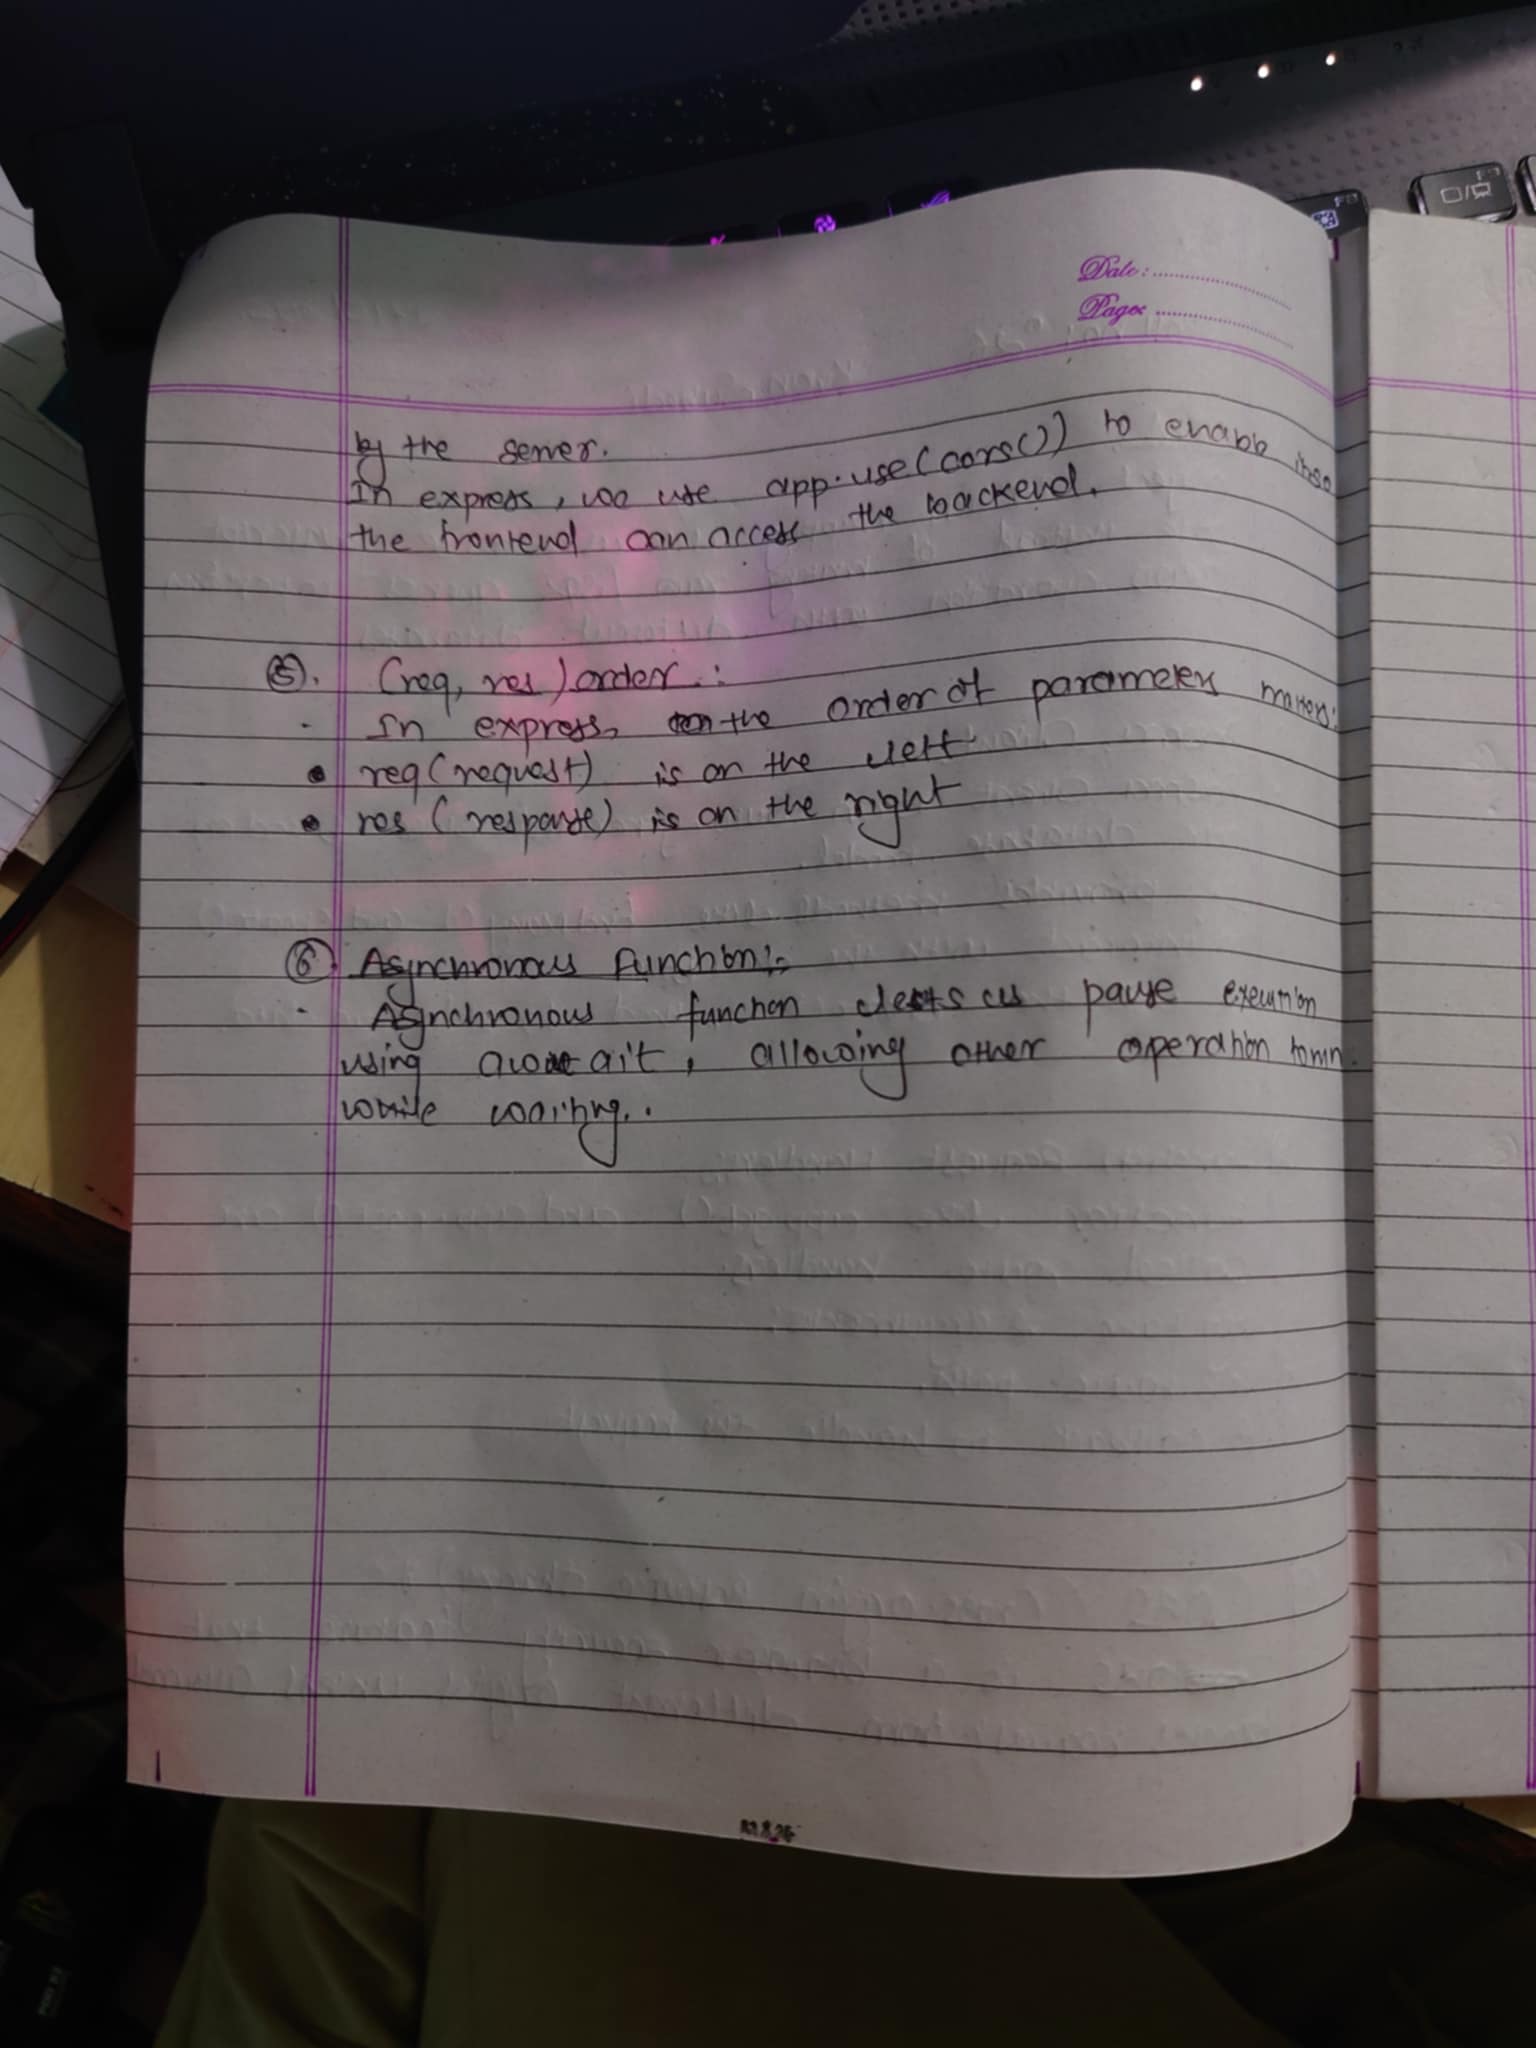 Date:
Page:
by the server.
In express, we use app.use(cors()) to enable
the frontend can access the backend.
(5). (req, res) order :
In express, the order of parameters matters:
req (request) is on the left
res (response) is on the right
(6) Asynchronous Function:
Asynchronous function lets us pause execution
using await, allowing other operation to run
while waiting..